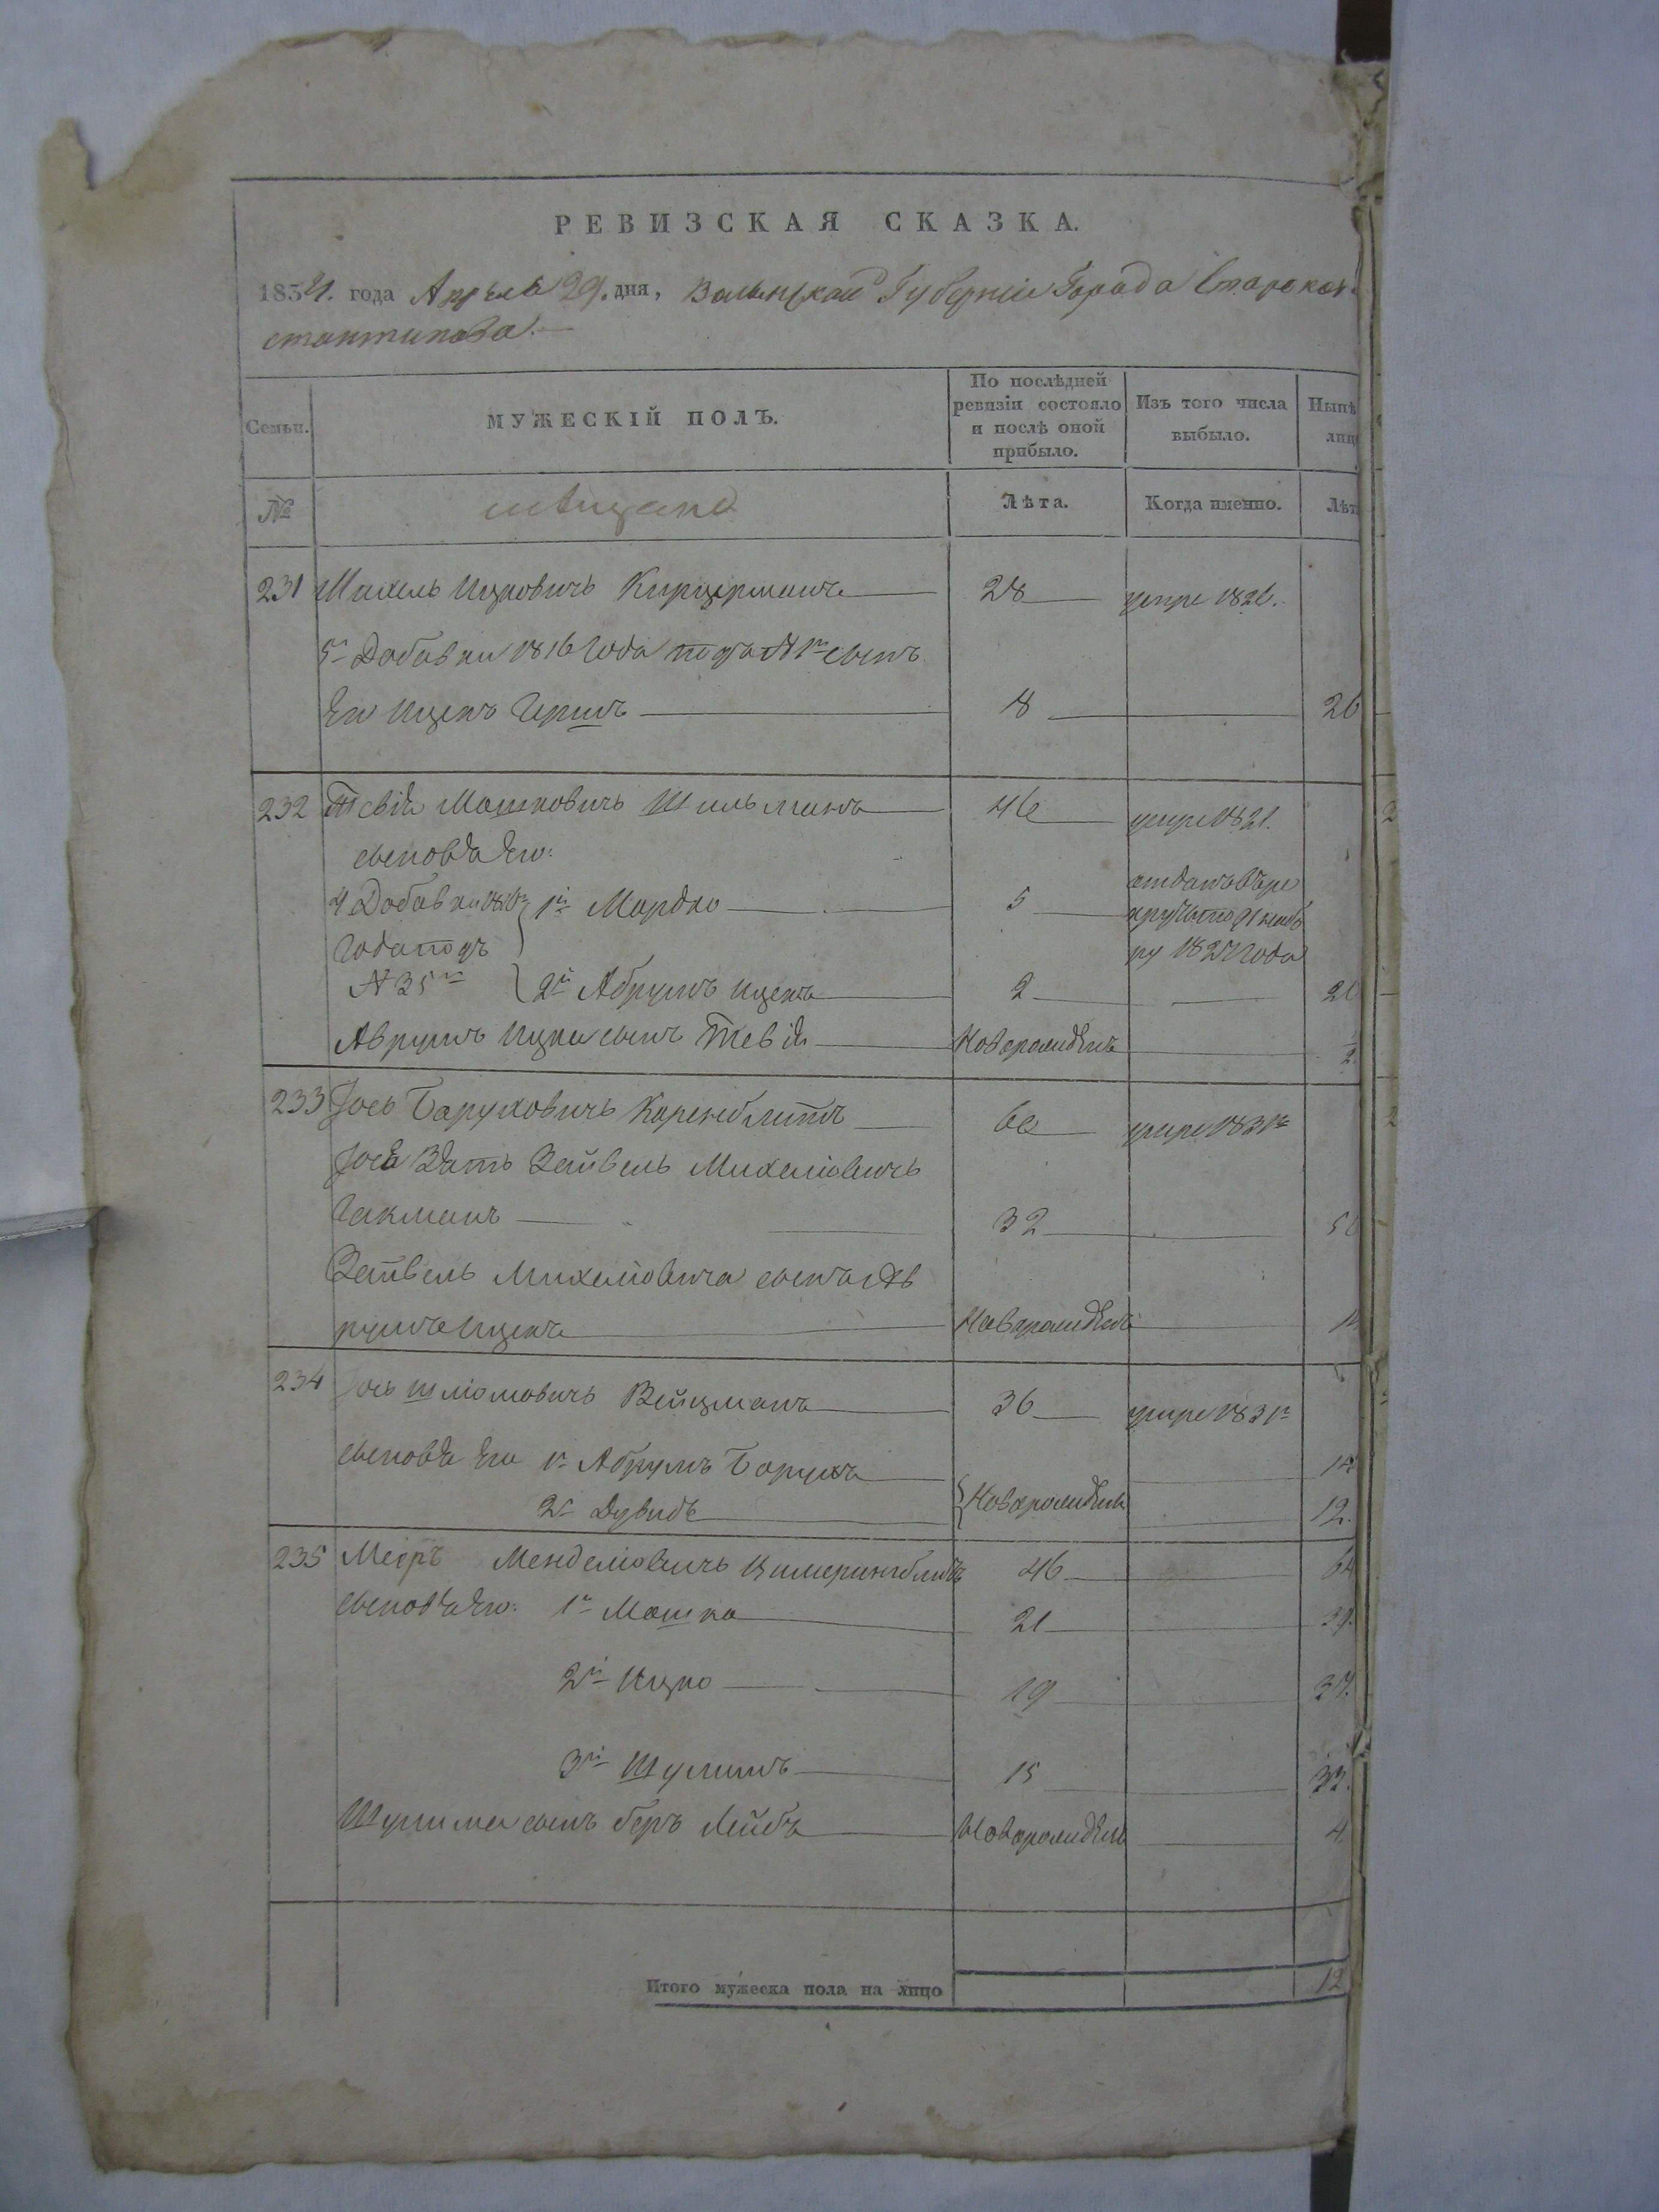 РЕВИЗСКАЯ СКАЗКА.
1834. года Апреля 29. дня, Волынской Губерніи Города Старокон-
стантинова.
Семьи. МУЖЕСКІЙ ПОЛЪ. По послѣдней ревизіи состояло и послѣ оной прибыло. Изъ того числа выбыло. Нынѣ лиц
№ мѣщане Лѣта. Когда именно. Лѣт
231 Михель Ицковичъ 28 умре 1826.
5й Добавки 1816 года подъ № 1м сынъ
Его Ицекъ Гершъ 8 26
232 Тевія Мошковичъ Шильманъ 46 умре 1821.
сыновья Его:
4 Добавки 1816 1й Мордко 5 отданъ въ ре
года подъ круты по набо
№ 35м ру 1827 года
2й Абрумъ Ицекъ 2 20
Аврумъ Ицка сынъ Тевія Новорожденъ
233 Іось Баруховичъ Коренблитъ 60 умре 1831г
Іося Зять Зейвель Михелiовичъ
Гакманъ 32 50
Зейвель Михелiовича сынъ Ав
румъ Ицекъ Новорожденъ
234 Іось Шліомовичъ Вейцманъ 36 умре 1831г
сыновья Его 1й Абрумъ Борухъ Новорожденъ 14
2й Дувидъ 12.
235 Мееръ Менделiовичъ 46 64
сыновья Его: 1й Мошко 21 39.
2й Ицко 19 37.
3й Шулимъ 15 33.
Шулима сынъ Беръ Лейбъ Новорожденъ 4
Итого мужеска пола на лицо 12